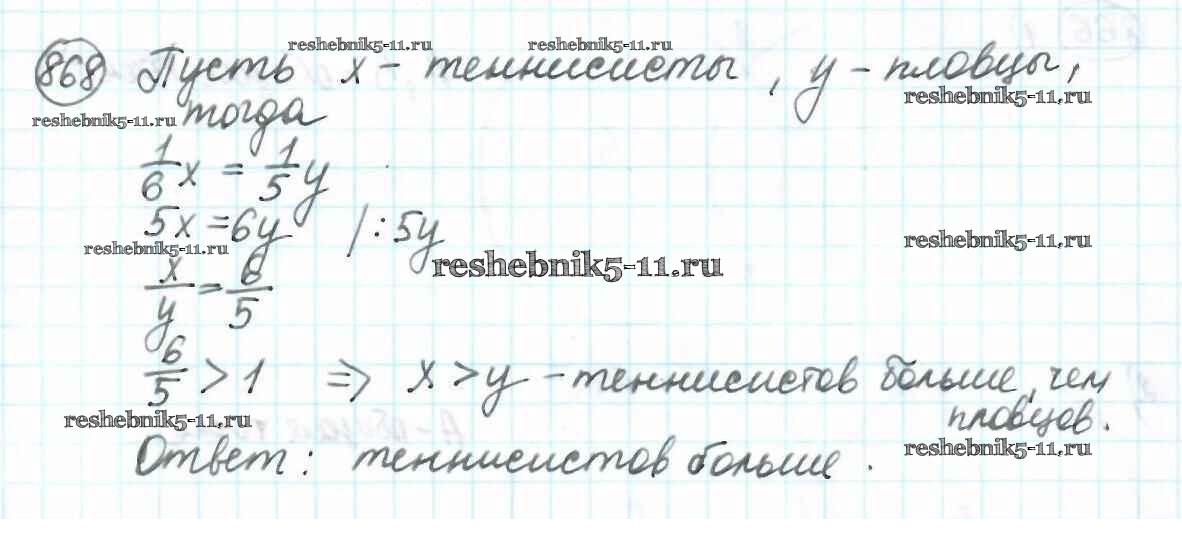 reshebnik5-11.ru reshebnik5-11.ru
868 Пусть x - теннисисты, y - пловцы,
reshebnik5-11.ru
reshebnik5-11.ru тогда
1/6 x = 1/5 y
5x = 6y |: 5y
reshebnik5-11.ru reshebnik5-11.ru
reshebnik5-11.ru
x/y = 6/5
6/5 > 1 => x > y - теннисистов больше, чем
пловцов.
reshebnik5-11.ru
Ответ: теннисистов больше.
reshebnik5-11.ru